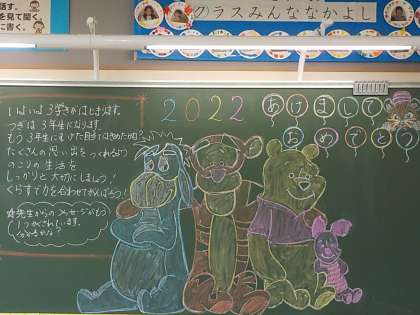 話す。
を見て聞く。
に書く。
のクラスみんななかよし
2022 あけまして
おめでとう
いよいよ3学きがはじまります。
つぎは3年生になります。
もう3年生にむけた目ひょうはきめたかな?
たくさんの思い出をつくれるよう
のこりの生活を
しっかりと大切にしましょう!
クラスで力を合わせてがんばろう!
☆先生からのメッセージがもう
1つかくされています。